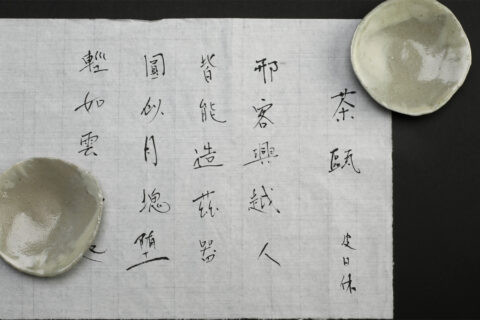 茶甌
皮日休
邢客與越人
皆能造茲器
圓似月魂堕
輕如雲